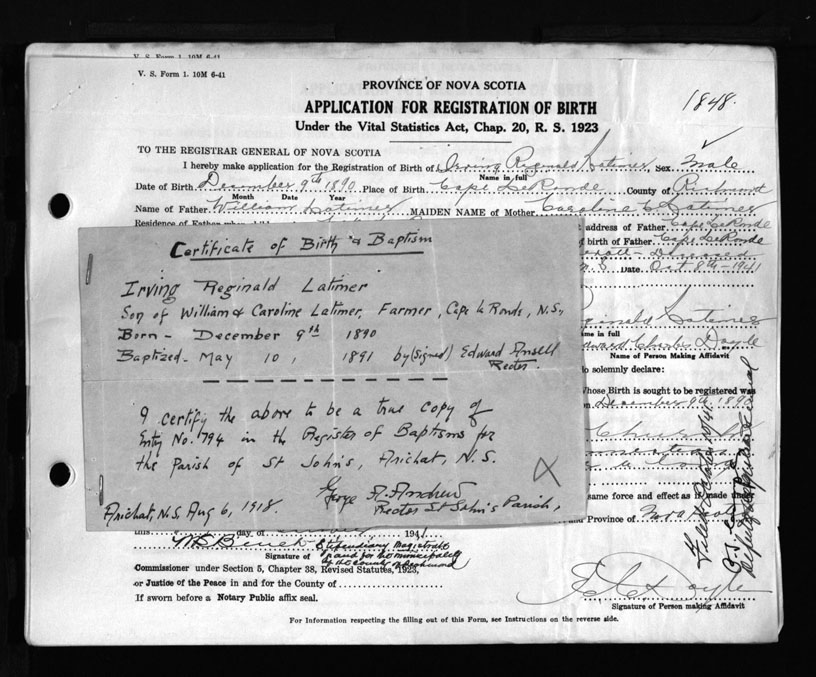 V. S. Form 1. 10M 6-41
V. S. Form 1. 10M 6-41
PROVINCE OF NOVA SCOTIA
1848.
APPLICATION FOR REGISTRATION OF BIRTH
Under the Vital Statistics Act, Chap. 20, R. S. 1923
TO THE REGISTRAR GENERAL OF NOVA SCOTIA
I hereby make application for the Registration of Birth of Irving Reginald Latimer Sex Male
Name in full
Date of Birth December 9th 1890 Place of Birth Cape LeRonde County of Richmond
Month Date Year
Name of Father William Latimer MAIDEN NAME of Mother Caroline C Latimer
Residence of Father address of Father Cape LeRonde
of birth of Father Cape LeRonde
Deceased
N.S. Date Oct 8th-1941
Certificate of Birth & Baptism
Irving Reginald Latimer
Son of William & Caroline Latimer, Farmer, Cape le Ronde, N.S.,
Born - December 9th 1890
Baptized - May 10, 1891 by (signed) Edward Ansell
Rector.
I certify the above to be a true copy of
Entry No. 794 in the Register of Baptisms for
the Parish of St John's, Arichat, N.S.
George A. Andrew
Arichat, N.S, Aug 6, 1918. Rector St John's Parish,
Reginald Latimer
name in full
Edward Charles Doyle
Name of Person Making Affidavit
do solemnly declare:
Whose Birth is sought to be registered was
on December 9th 1890
same force and effect as if made under
and Province of Nova Scotia
this day of 1941
Stipendiary Magistrate
Signature of in and for the municipality
of the County of Richmond
Commissioner under Section 5, Chapter 38, Revised Statutes, 1923,
or Justice of the Peace in and for the County of
If sworn before a Notary Public affix seal.
E C Doyle
Signature of Person making Affidavit
For Information respecting the filling out of this Form, see Instructions on the reverse side.
Deputy Registrar General